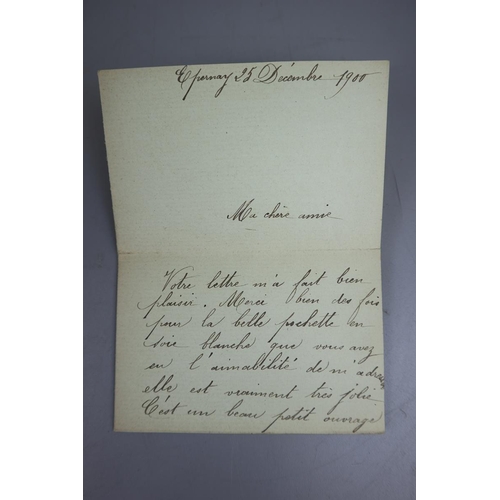 Epernay 25 Décembre 1900
Ma chère amie
Votre lettre m'a fait bien
plaisir. Merci bien des fois
pour la belle pochette en
soie blanche que vous avez
eu l'aimabilité de m'adresser
elle est vraiment très jolie.
C'est un beau petit ouvrage